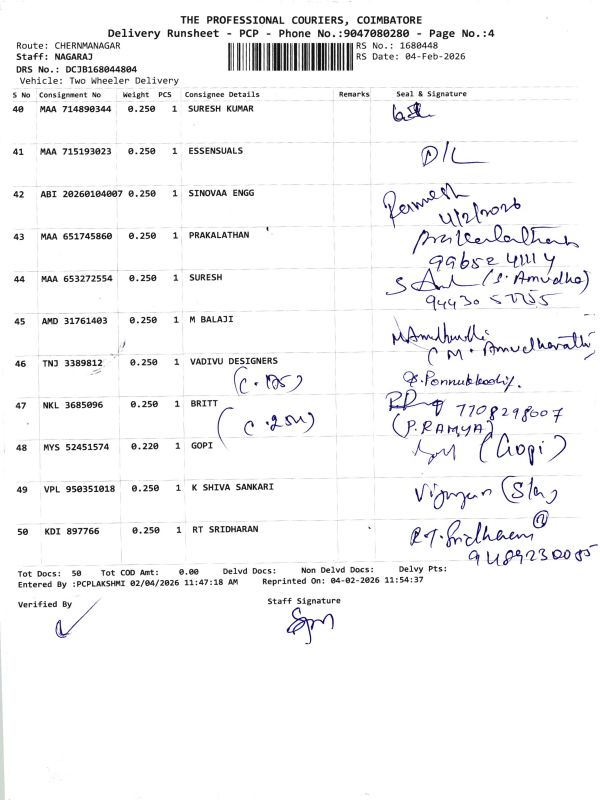 THE PROFESSIONAL COURIERS, COIMBATORE
Delivery Runsheet - PCP - Phone No.:9047080280 - Page No.:4
Route: CHERNMANAGAR
RS No.: 1680448
Staff: NAGARAJ
RS Date: 04-Feb-2026
DRS No.: DCJB168044804
Vehicle: Two Wheeler Delivery
S No Consignment No Weight PCS Consignee Details Remarks Seal & Signature
40 MAA 714890344 0.250 1 SURESH KUMAR
41 MAA 715193023 0.250 1 ESSENSUALS D/L
42 ABI 20260104007 0.250 1 SINOVAA ENGG
4/2/2026
43 MAA 651745860 0.250 1 PRAKALATHAN
99652 41114
44 MAA 653272554 0.250 1 SURESH (S. Amudha)
94430
45 AMD 31761403 0.250 1 M BALAJI
(M. Amudharathi)
46 TNJ 3389812 0.250 1 VADIVU DESIGNERS
47 NKL 3685096 0.250 1 BRITT 7708298007
(P.RAMYA)
48 MYS 52451574 0.220 1 GOPI (Gopi)
49 VPL 950351018 0.250 1 K SHIVA SANKARI
50 KDI 897766 0.250 1 RT SRIDHARAN R.T.Sridharan
9489230085
Tot Docs: 50 Tot COD Amt: 0.00 Delvd Docs: Non Delvd Docs: Delvy Pts:
Entered By :PCPLAKSHMI 02/04/2026 11:47:18 AM Reprinted On: 04-02-2026 11:54:37
Verified By Staff Signature